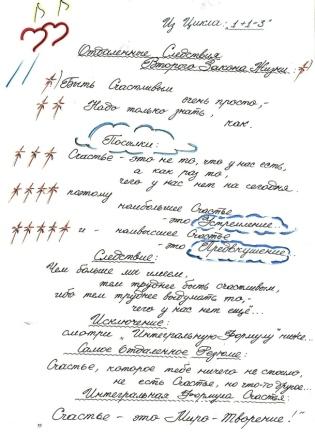 Из Цикла: "1+1=3"
Отдаленные Следствия
Второго Закона Жизни:
Быть Счастливым
очень просто,-
Надо только знать,
как.
Посылки:
Счастье - это не то, что у нас есть,
а как раз то,
чего у нас нет на сегодня...
поэтому
наибольшее Счастье
- это Устремление...
и - наивысшее Счастье
- это Предвкушение
Следствие:
Чем больше мы имеем,
тем труднее быть счастливым,
ибо тем труднее выдумать то,-
чего у нас нет ещё...
Исключение:
смотри "Интегральную Формулу" ниже...
Самое Отдаленное Резюме:
Счастье, которое тебе ничего не стоило,
не есть Счастье, но что-то Другое...
Интегральная Формула Счастья:
Счастье - это Миро-Творение!"